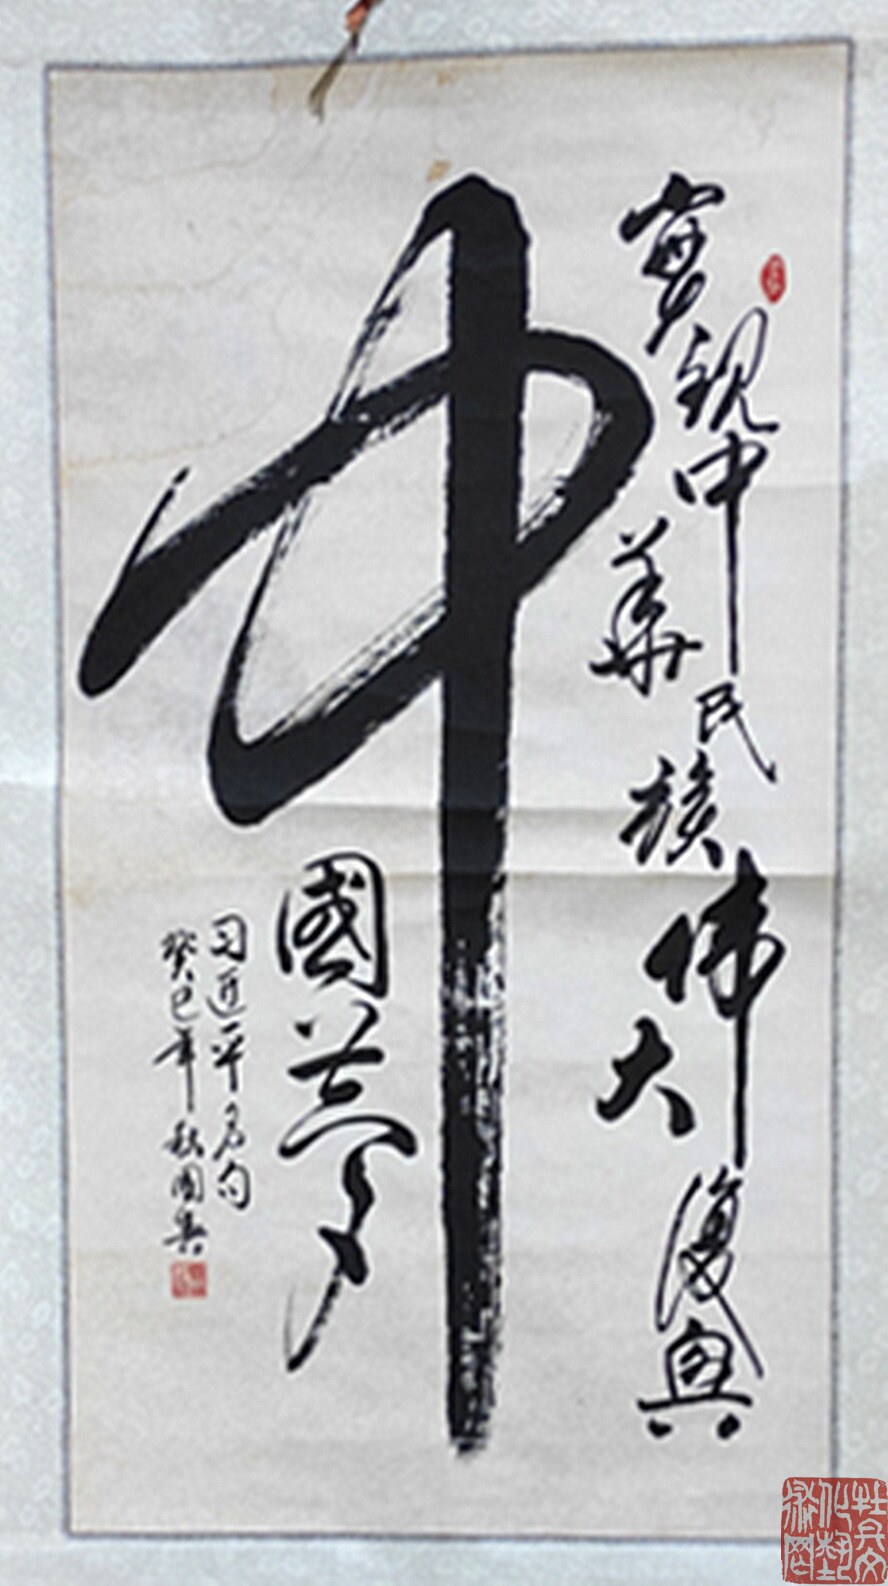 實現中華民族偉大復興
中國夢
习近平名句
癸巳年秋國興